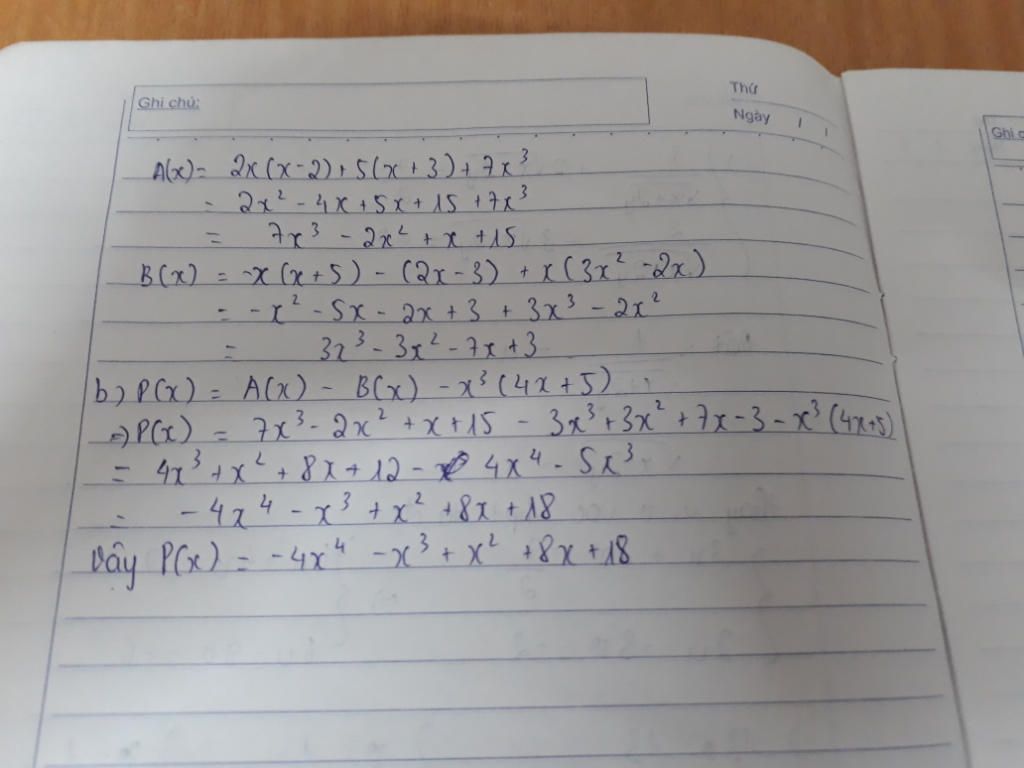 Thứ
Ghi chú:
Ngày / /
Ghi c
A(x) = 2x(x-2) + 5(x+3) + 7x³
= 2x² - 4x + 5x + 15 + 7x³
= 7x³ - 2x² + x + 15
B(x) = -x(x+5) - (2x-3) + x(3x² - 2x)
= -x² - 5x - 2x + 3 + 3x³ - 2x²
= 3x³ - 3x² - 7x + 3
b) P(x) = A(x) - B(x) - x³(4x+5)
=> P(x) = 7x³ - 2x² + x + 15 - 3x³ + 3x² + 7x - 3 - x³(4x+5)
= 4x³ + x² + 8x + 12 - 4x⁴ - 5x³
= -4x⁴ - x³ + x² + 8x + 18
Vậy P(x) = -4x⁴ - x³ + x² + 8x + 18